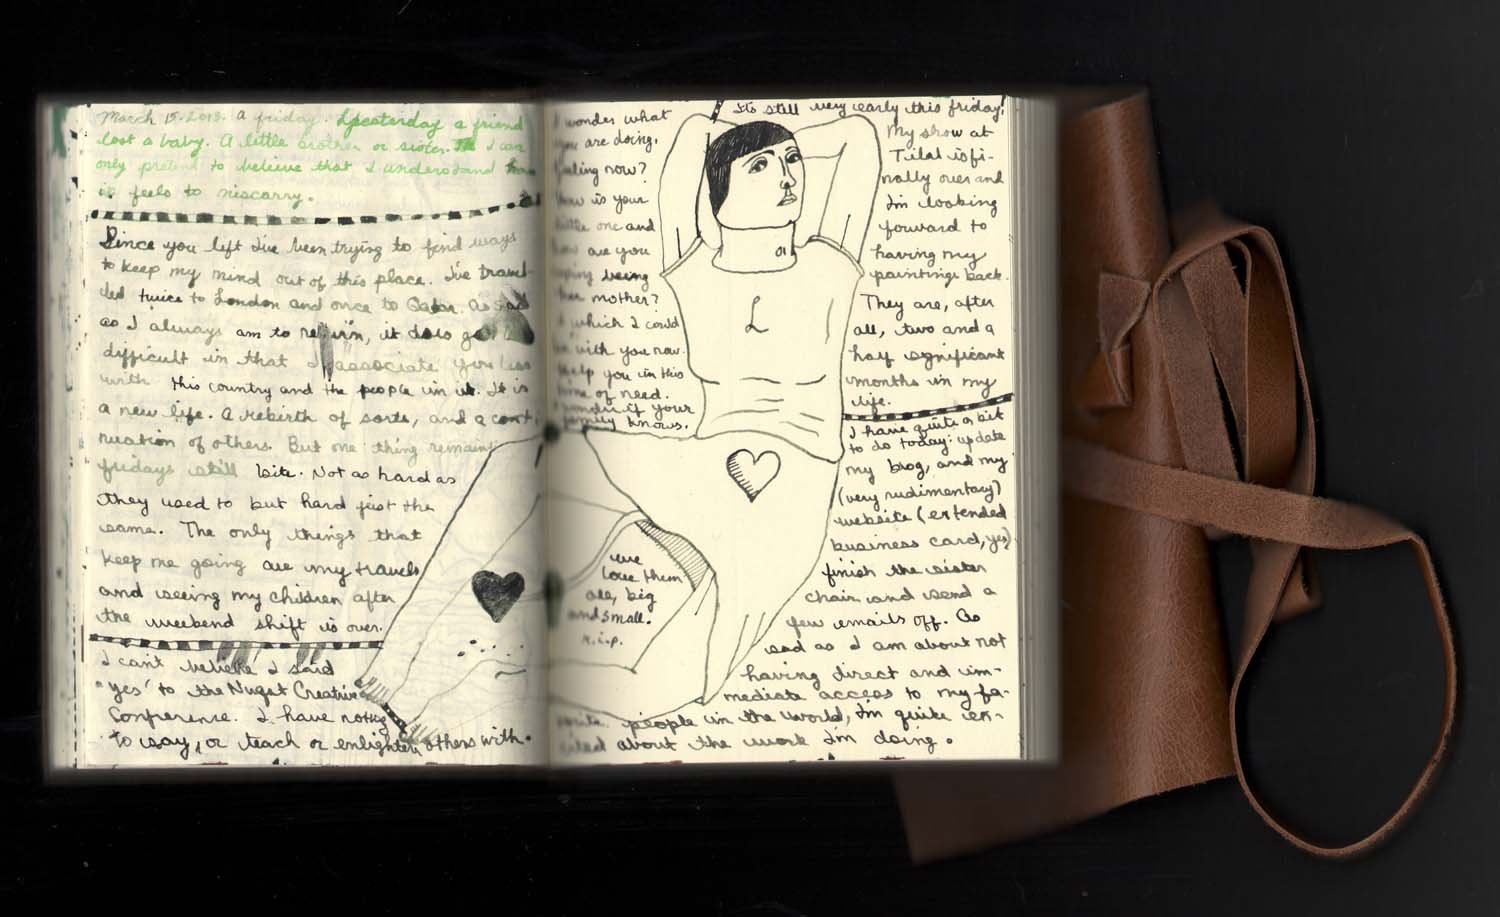 March 15. 2013. a friday. Yesterday a friend
lost a baby. A little brother or sister. I can
only pretend to believe that I understand how
it feels to miscarry.
Since you left I've been trying to find ways
to keep my mind out of this place. I've travel-
led twice to London and once to Qatar. As sad
as I always am to return, it does get
difficult in that I associate you less
with this country and the people in it. It is
a new life. A rebirth of sorts, and a conti-
nuation of others. But one thing remains
fridays still bite. Not as hard as
they used to but hard just the
same. The only things that
keep me going are my travels
and seeing my children after
the weekend shift is over.
I can't believe I said
"yes" to the Nuqat Creative
Conference. I have nothing
to say, or teach or enlighten others with.
I wonder what
you are doing.
feeling now?
How is your
little one and
how are you
being
her mother?
which I could
be with you now.
help you in this
time of need.
wonder if your
family knows.
L
we
love them
all, big
and small.
r.i.p.
It's still very early this friday!
My show at
Tilal is fi-
nally over and
I'm looking
forward to
having my
paintings back.
They are, after
all, two and a
half significant
months in my
life.
I have quite a bit
to do today: update
my blog, and my
(very rudimentary)
website (extended
business card, yes)
finish the sister
chair and send a
few emails off. As
sad as I am about not
having direct and im-
mediate access to my fa-
vorite people in the world, I'm quite ex-
cited about the work I'm doing.